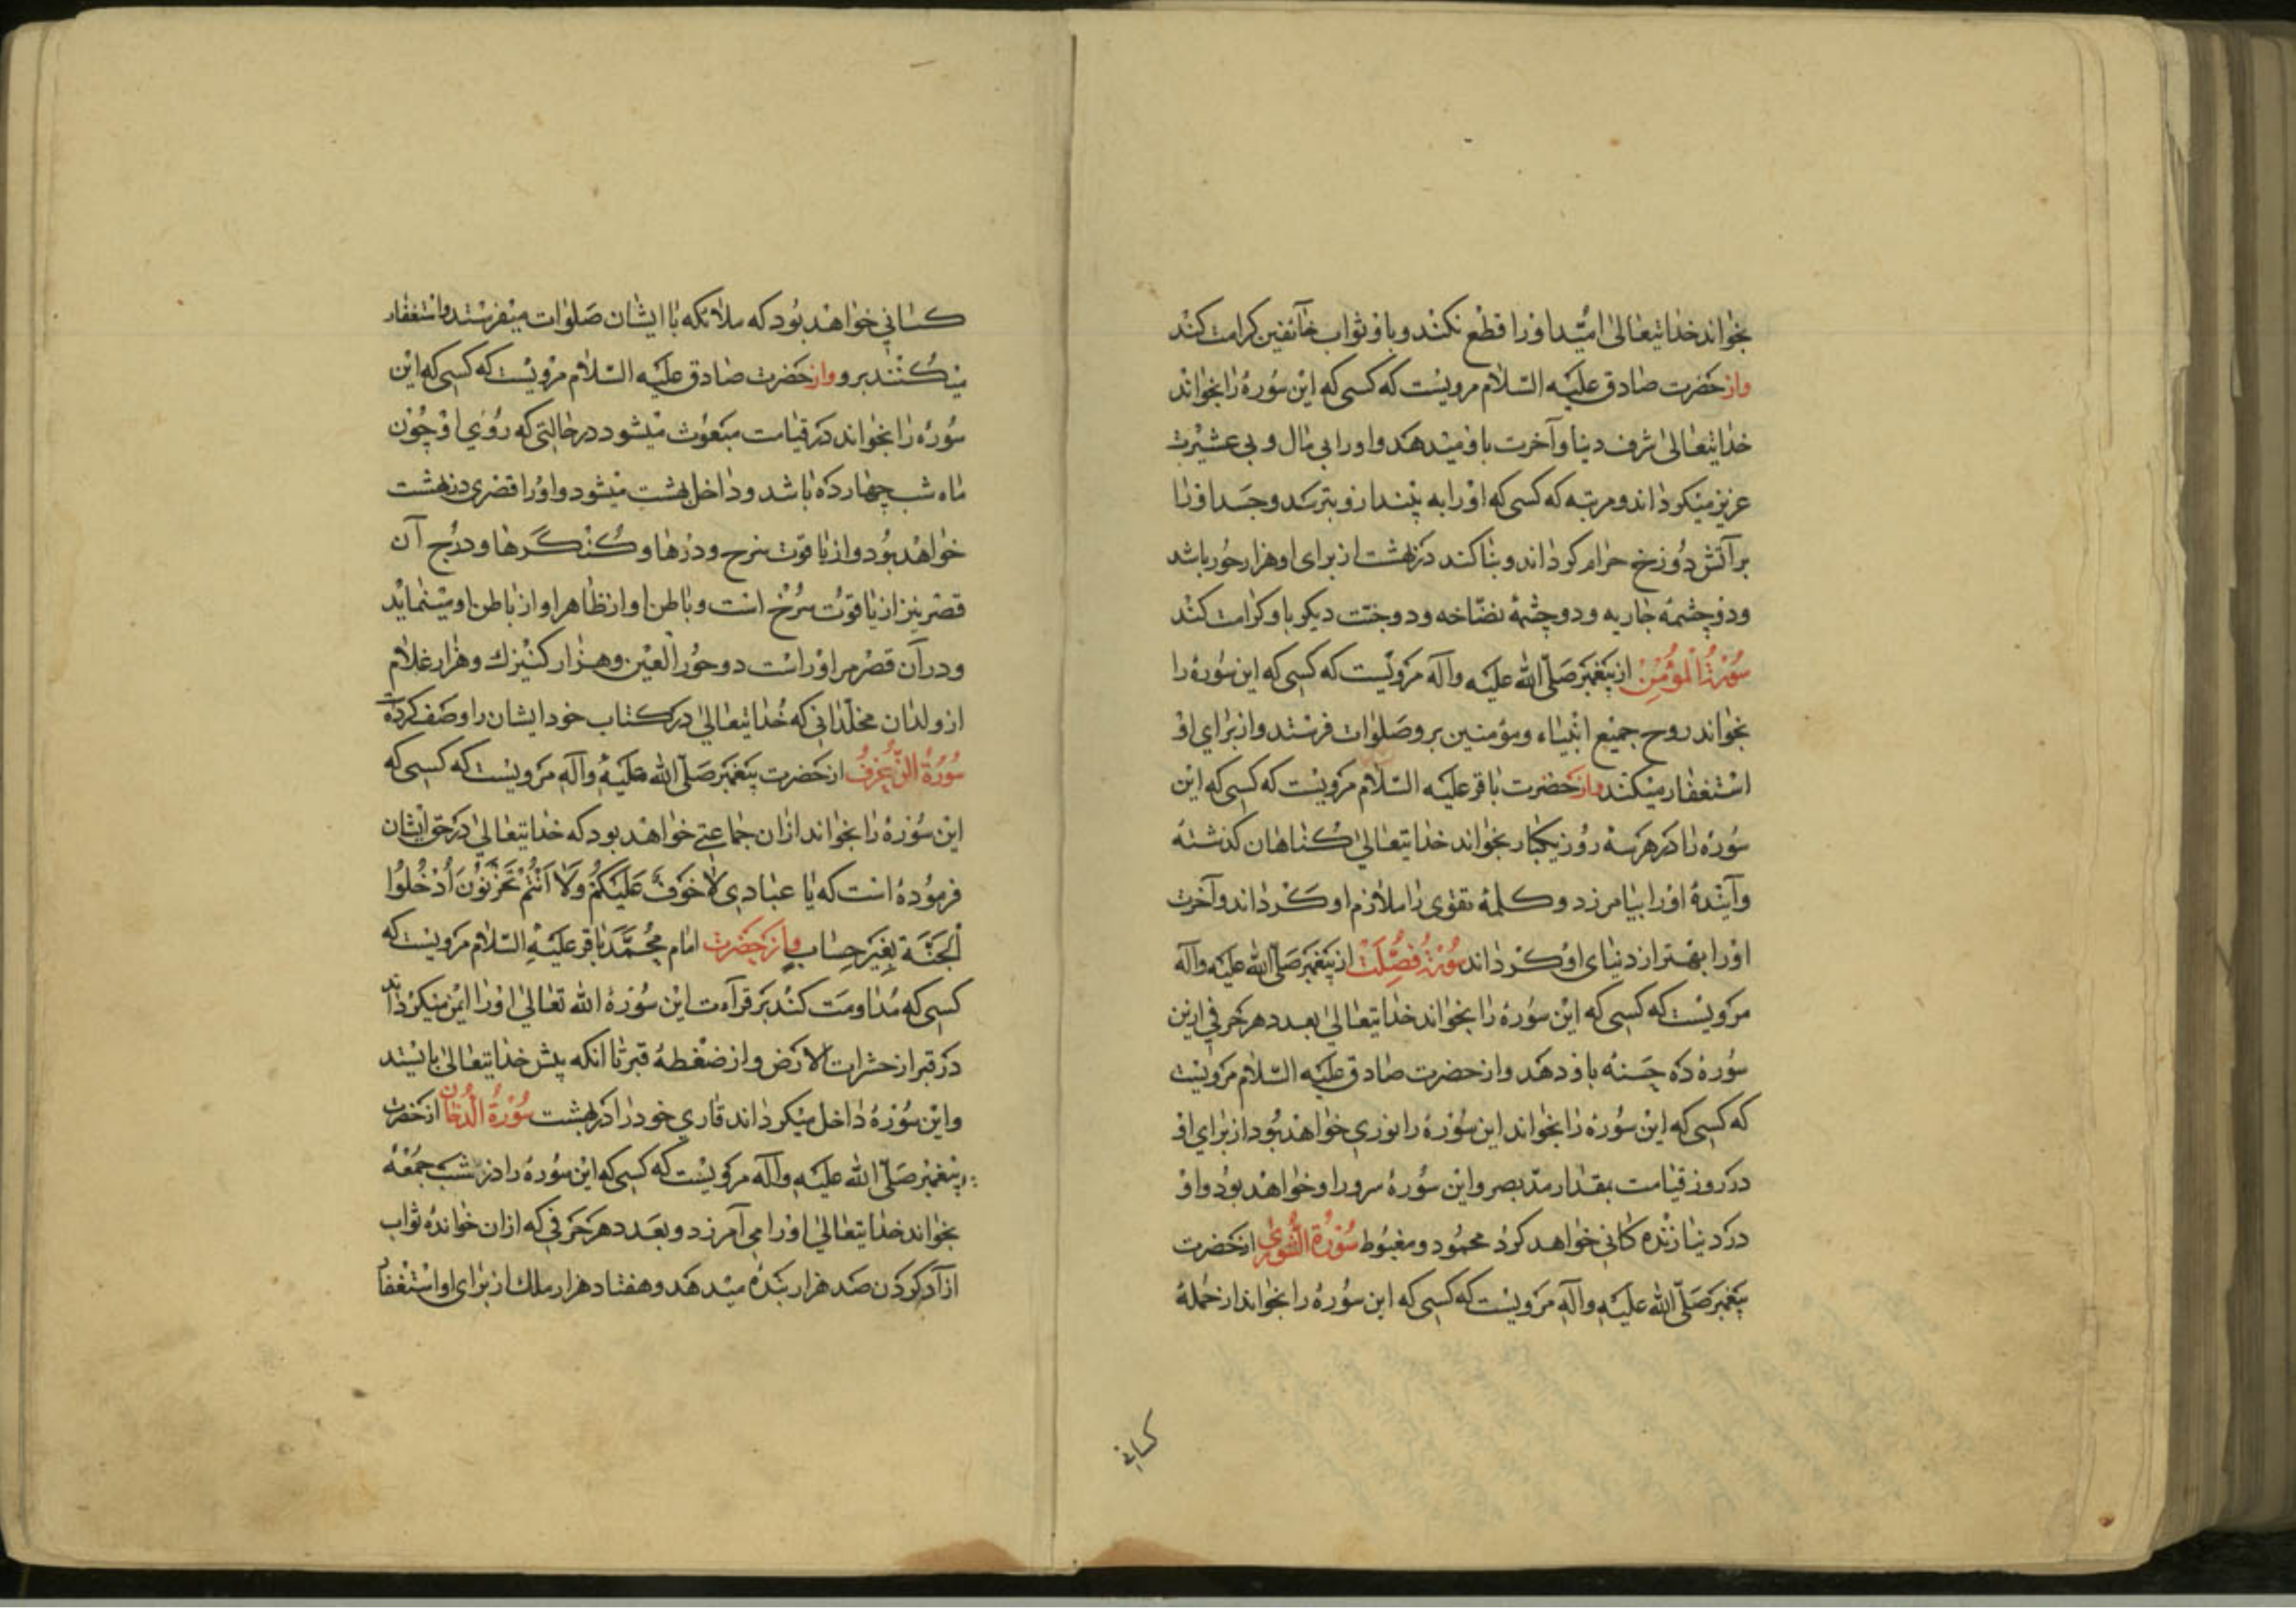 بخواند خدایتعالی امید او را قطع نکند و باو ثواب خائفین کرامت کند
واز حضرت صادق علیه السلام مرویست که کسی که این سوره را بخواند
خدایتعالی شرف دنیا و آخرت باو میدهد و او را بی مال و بی عشیرت
عزیز میکرداند و مرتبه که کسی که او را به بیند ازو بترسد و جسد او را
بر آتش دوزخ حرام کرداند و بنا کند در بهشت از برای او هزار حور باشد
و دو چشمهٔ جاریه و دو چشمهٔ نضاخه و دو جنت دیکر باو کرامت کند
سورة المؤمن از پیغمبر صلی الله علیه وآله مرویست که کسی که این سوره را
بخواند روح جمیع انبیاء و مؤمنین برو صلوات فرستد و از برای او
استغفار میکنند واز حضرت باقر علیه السلام مرویست که کسی که این
سوره را در هر سه روز یکبار بخواند خدایتعالی کناهان کذشته
وآیندهٔ او را بیامرزد و کلمهٔ تقوی را ملازم او کرداند و آخرت
او را بهتر از دنیای او کرداند سورة فصلت از پیغمبر صلی الله علیه وآله
مرویست که کسی که این سوره را بخواند خدایتعالی بعدد هر حرفی ازین
سوره ده حسنه باو دهد و از حضرت صادق علیه السلام مرویست
که کسی که این سوره را بخواند این سوره را نوری خواهد بود از برای او
در روز قیامت بقدار مد بصر و این سوره سرور او خواهد بود و او
در دنیا زنده کانی خواهد کرد محمود و مغبوط سورة الشوری از حضرت
پیغمبر صلی الله علیه وآله مرویست که کسی که این سوره را بخواند از جملهٔ
کسانی
کسانی خواهد بود که ملائکه با ایشان صلوات میفرستد و استغفار
میکنند برو واز حضرت صادق علیه السلام مرویست که کسی که این
سوره را بخواند در قیامت مبعوث میشود در حالتی که روی او چون
ماه شب چهارده باشد و داخل بهشت میشود و او را قصری در بهشت
خواهد بود و از یاقوت سرح و درها و کنگرها و درج آن
قصر نیز از یاقوت سرخ است و باطن او از ظاهر او از باطن او مینماید
و در آن قصر مر او راست دو حور العین و هزار کنیزك و هزار غلام
از ولدان مخلدانی که خدایتعالی در کتاب خود ایشان را وصف کرده
سورة الزخرف از حضرت پیغمبر صلی الله علیه وآله مرویست که کسی که
این سوره را بخواند ازان جماعتی خواهد بود که خدایتعالی در حق ایشان
فرموده است که یا عبادی لا خوف علیکم ولا انتم تحزنون ادخلوا
الجنة بغیر حساب واز حضرت امام محمد باقر علیه السلام مرویست که
کسی که مداومت کند بر قرآءت این سوره الله تعالی او را ایمن میکرداند
در قبر از حشرات الارض و از ضغطهٔ قبر تا انکه پیش خدایتعالی بایستد
و این سوره داخل میکرداند قاری خود را در بهشت سورة الدخان از حضرت
پیغمبر صلی الله علیه وآله مرویست که کسی که این سوره را در شب جمعه
بخواند خدایتعالی او را می آمرزد و بعدد هر حرفی که ازان خوانده ثواب
ازآد کردن صد هزار بنده میدهد و هفتاد هزار ملك از برای او استغفار